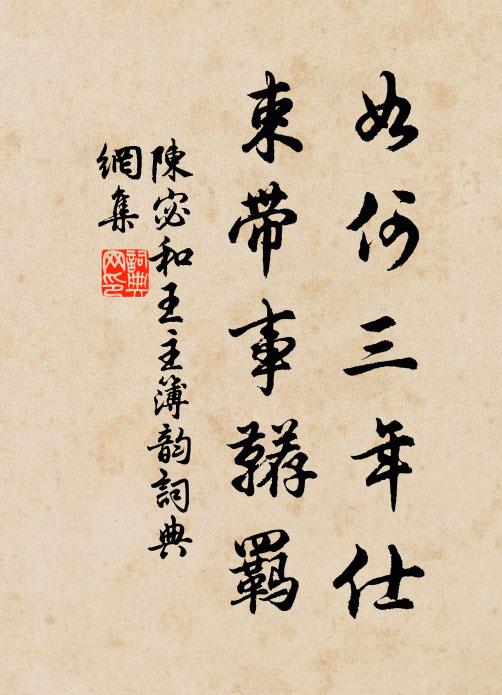 如何三年仕
束帶事羈
陳宓和王主簿韵詞典
網集
詞典
网印